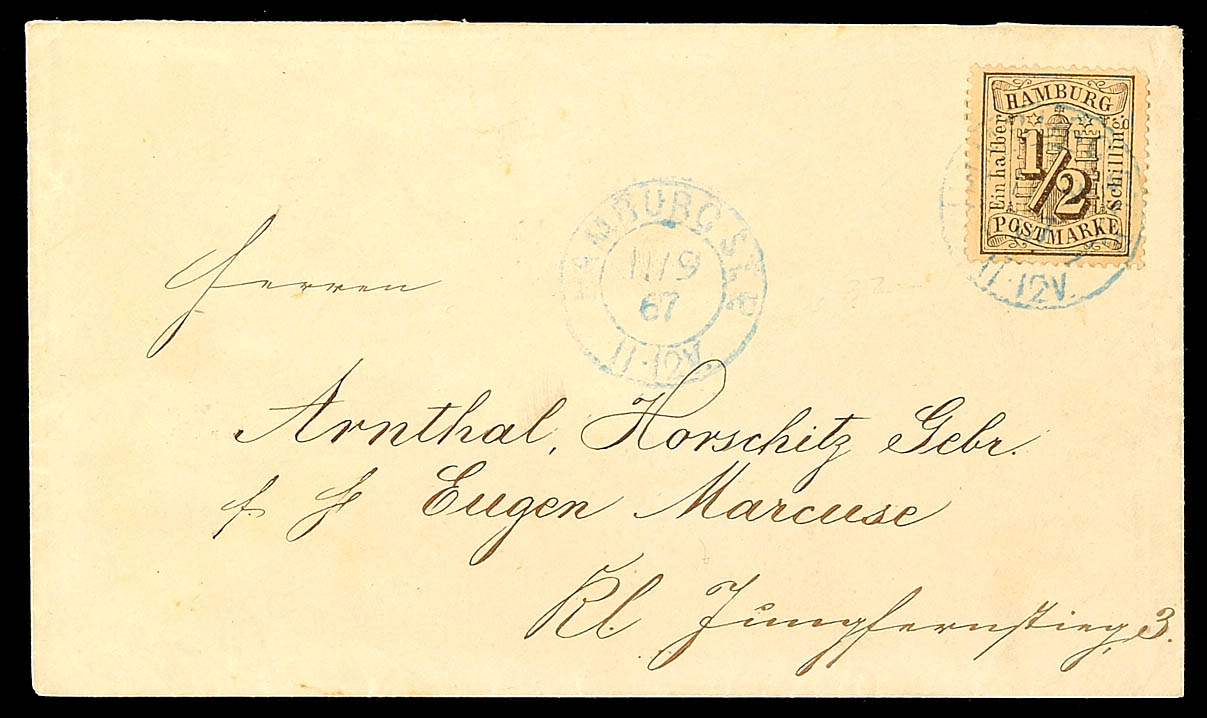 HAMBURG
Ein halber
1/2
Schilling
POSTMARKE
11-12V.
HAMBURG St. P.
11/9
67
11-12V.
Herren
Arnthal, Horschitz Gebr.
f. H Eugen Marcuse
Kl. Jungfernstieg, 3.